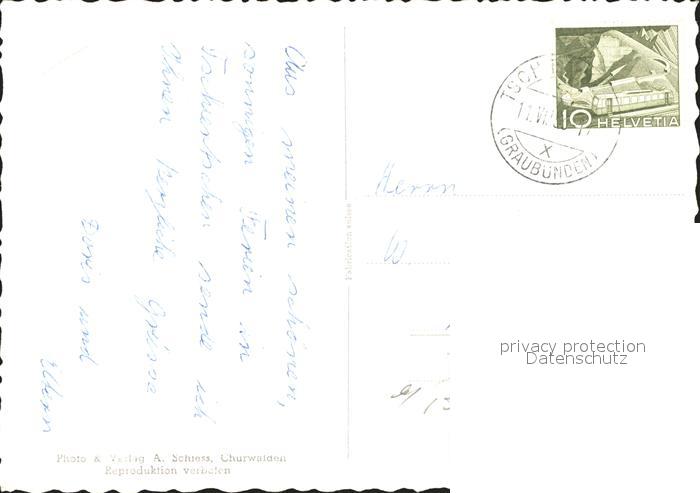 Aus meinen schönen,
sonnigen Ferien in
Tschiertschen sende ich
Ihnen herzliche Grüsse
Doris und
Eltern
Photo & Verlag A. Schiess, Churwalden
Reproduktion verboten
Fabrication suisse
TSCH
11.VI
X
(GRAUBÜNDEN)
10 HELVETIA
Herrn
W.
privacy protection
Datenschutz